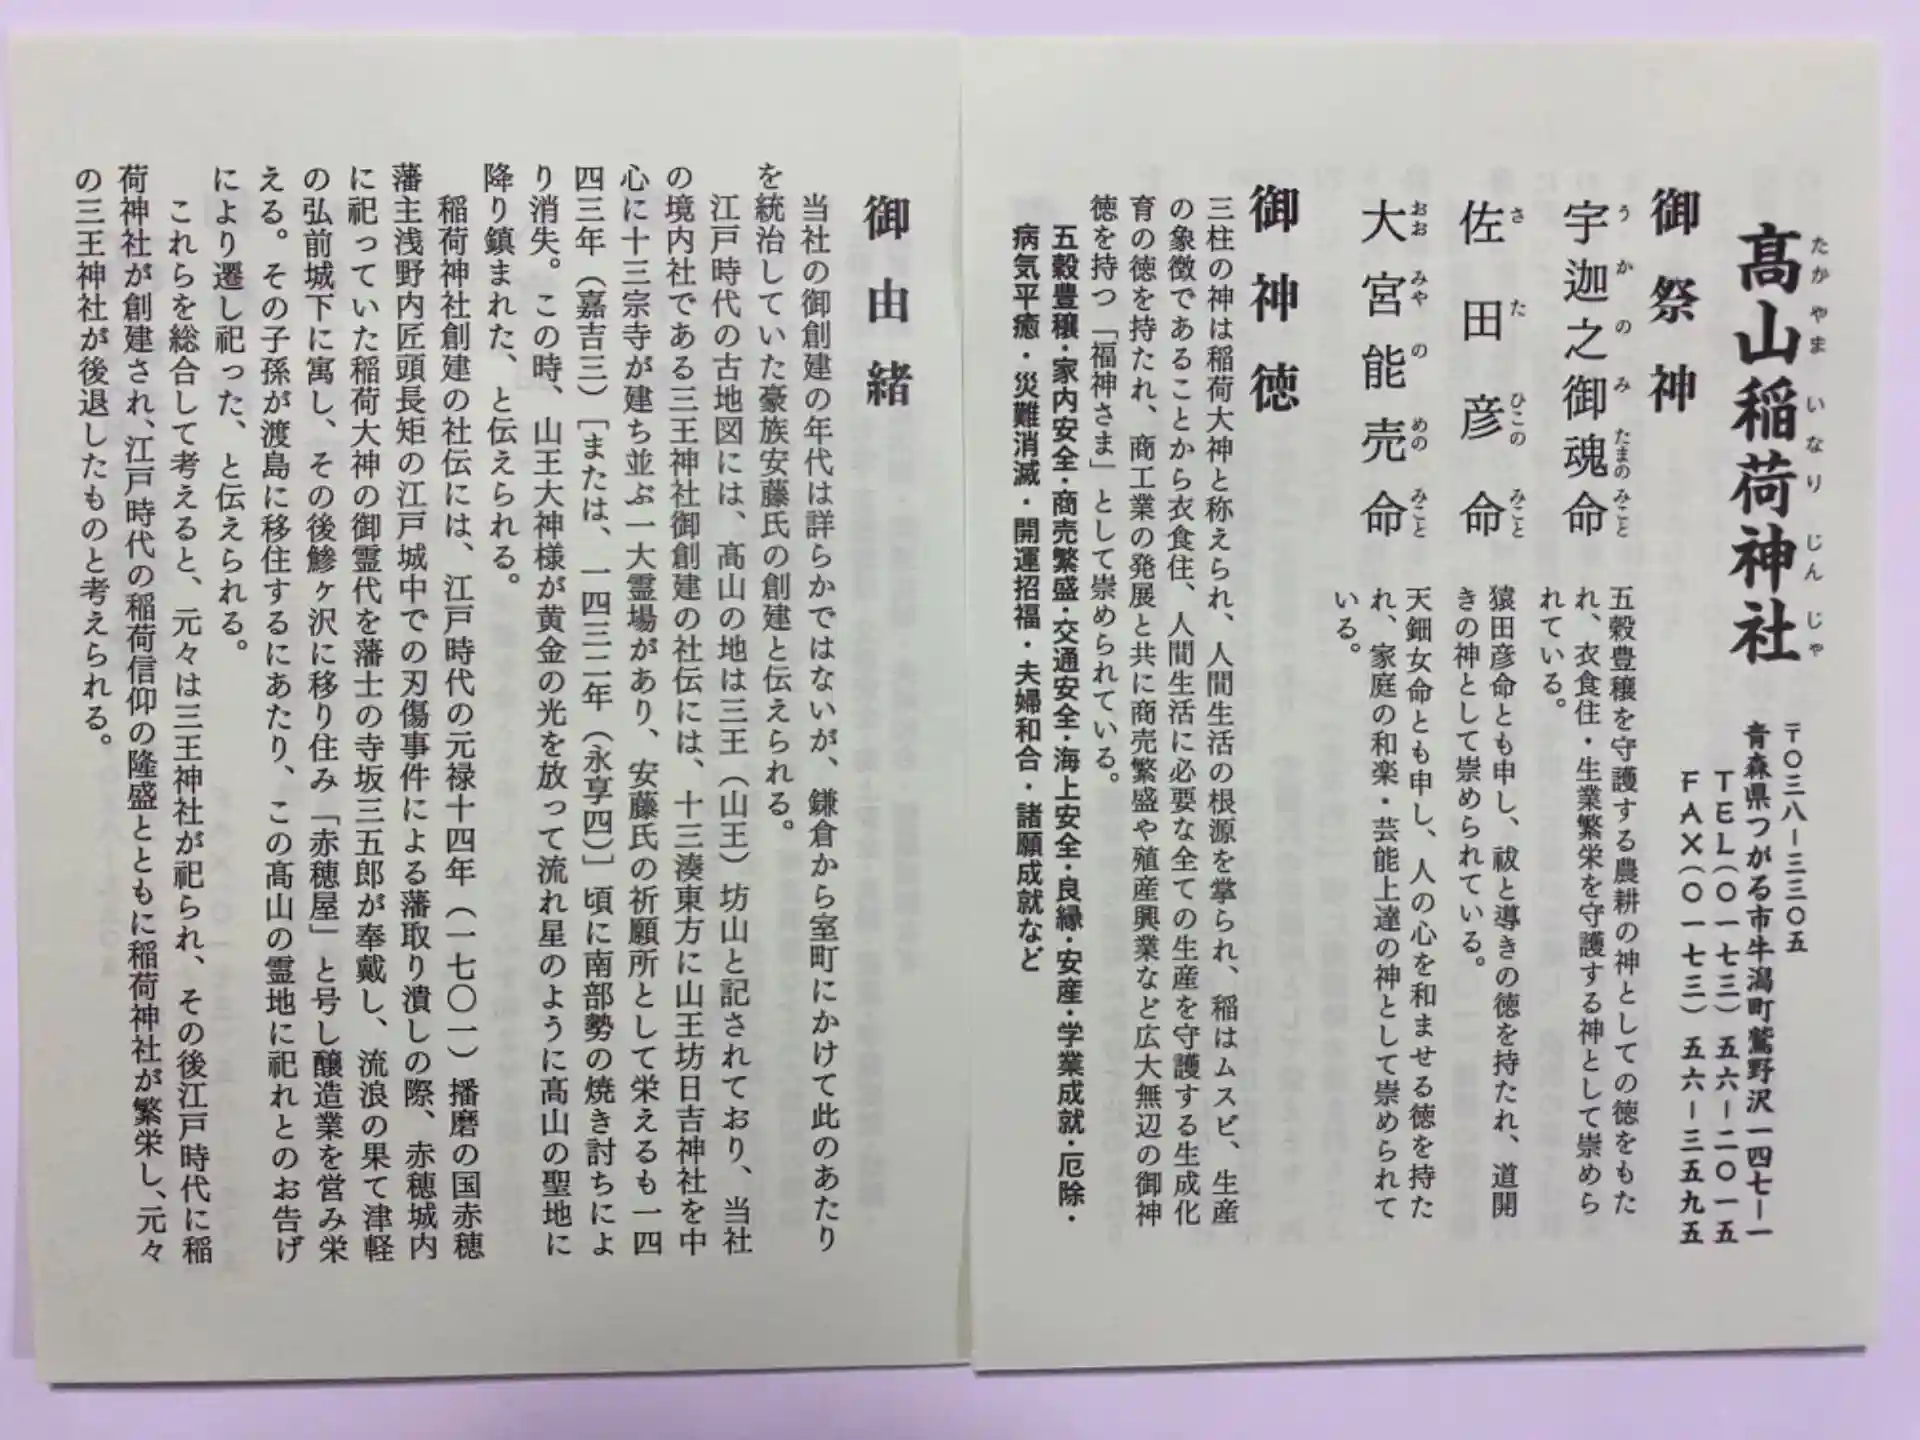 髙山稲荷神社
たかやまいなりじんじゃ
〒〇三八－三三〇五
青森県つがる市牛潟町鷲野沢一四七－一
ＴＥＬ（〇一七三）五六－二〇一五
ＦＡＸ（〇一七三）五六－三五九五
御祭神
宇迦之御魂命
うかのみたまのみこと
五穀豊穣を守護する農耕の神としての徳をもた
れ、衣食住・生業繁栄を守護する神として崇めら
れている。
佐田彦命
さたひこのみこと
猿田彦命とも申し、祓と導きの徳を持たれ、道開
きの神として崇められている。
大宮能売命
おおみやのめのみこと
天鈿女命とも申し、人の心を和ませる徳を持た
れ、家庭の和楽・芸能上達の神として崇められて
いる。
御神徳
三柱の神は稲荷大神と称えられ、人間生活の根源を掌られ、稲はムスビ、生産
の象徴であることから衣食住、人間生活に必要な全ての生産を守護する生成化
育の徳を持たれ、商工業の発展と共に商売繁盛や殖産興業など広大無辺の御神
徳を持つ「福神さま」として崇められている。
五穀豊穣・家内安全・商売繁盛・交通安全・海上安全・良縁・安産・学業成就・厄除・
病気平癒・災難消滅・開運招福・夫婦和合・諸願成就など
御由緒
当社の御創建の年代は詳らかではないが、鎌倉から室町にかけて此のあたり
を統治していた豪族安藤氏の創建と伝えられる。
江戸時代の古地図には、髙山の地は三王（山王）坊山と記されており、当社
の境内社である三王神社御創建の社伝には、十三湊東方に山王坊日吉神社を中
心に十三宗寺が建ち並ぶ一大霊場があり、安藤氏の祈願所として栄えるも一四
四三年（嘉吉三）［または、一四三二年（永享四）］頃に南部勢の焼き討ちによ
り消失。この時、山王大神様が黄金の光を放って流れ星のように髙山の聖地に
降り鎮まれた、と伝えられる。
稲荷神社創建の社伝には、江戸時代の元禄十四年（一七〇一）播磨の国赤穂
藩主浅野内匠頭長矩の江戸城中での刃傷事件による藩取り潰しの際、赤穂城内
に祀っていた稲荷大神の御霊代を藩士の寺坂三五郎が奉戴し、流浪の果て津軽
の弘前城下に寓し、その後鰺ヶ沢に移り住み「赤穂屋」と号し醸造業を営み栄
える。その子孫が渡島に移住するにあたり、この髙山の霊地に祀れとのお告げ
により遷し祀った、と伝えられる。
これらを総合して考えると、元々は三王神社が祀られ、その後江戸時代に稲
荷神社が創建され、江戸時代の稲荷信仰の隆盛とともに稲荷神社が繁栄し、元々
の三王神社が後退したものと考えられる。